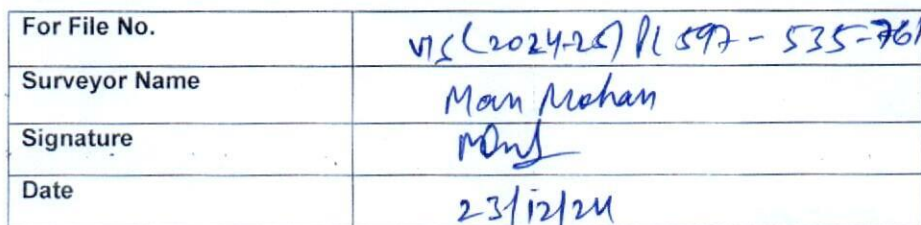 For File No. VIS(2024-25) PL597-535-761
Surveyor Name Man Mohan
Signature
Date 23/12/24